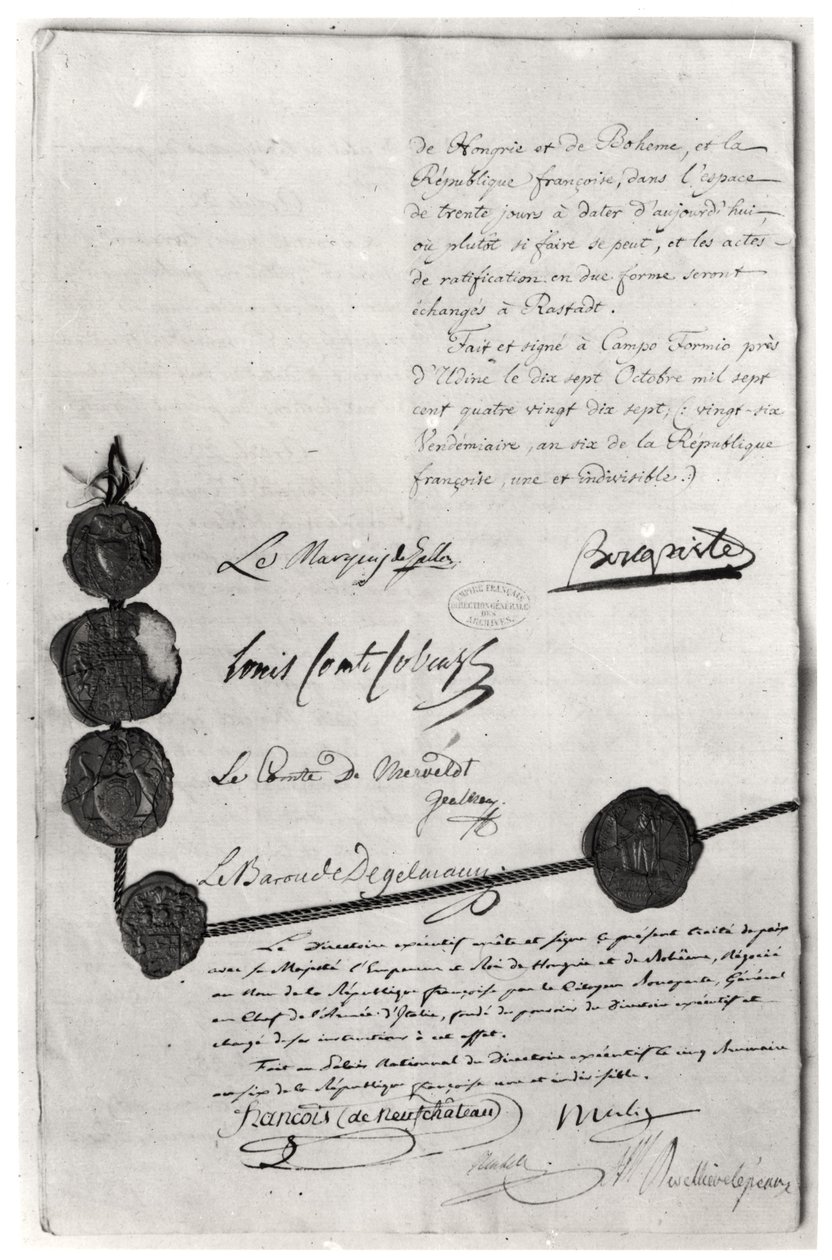 de Hongrie et de Boheme, et la
République françoise, dans l'espace
de trente jours à dater d'aujourd'hui,
où plutôt si faire se peut, et les actes
de ratification en due forme seront
échangés à Rastadt.
Fait et signé à Campo Formio près
d'Udine le dix sept Octobre mil sept
cent quatre vingt dix sept, (: vingt-six
Vendémiaire, an six de la République
françoise, une et indivisible.:)
Le Marquis de Gallo
Bonaparte
EMPIRE FRANÇAIS
DIRECTION GÉNÉRALE
DES
ARCHIVES.
Louis Comte Cobenzl
Le Comte De Merveldt
Le Baron de Degelmann.
Le Directoire exécutif arrête et signe le présent traité de paix
avec sa Majesté l'Empereur et Roi de Hongrie et de Bohême, négocié
au nom de la République françoise par le Citoyen Bonaparte, Général
en Chef de l'Armée d'Italie, fondé de pouvoirs du Directoire exécutif et
chargé de ses instructions à cet effet.
Fait au Palais National du Directoire exécutif le cinq Brumaire
an six de la République françoise une et indivisible.
François (de Neufchâteau)